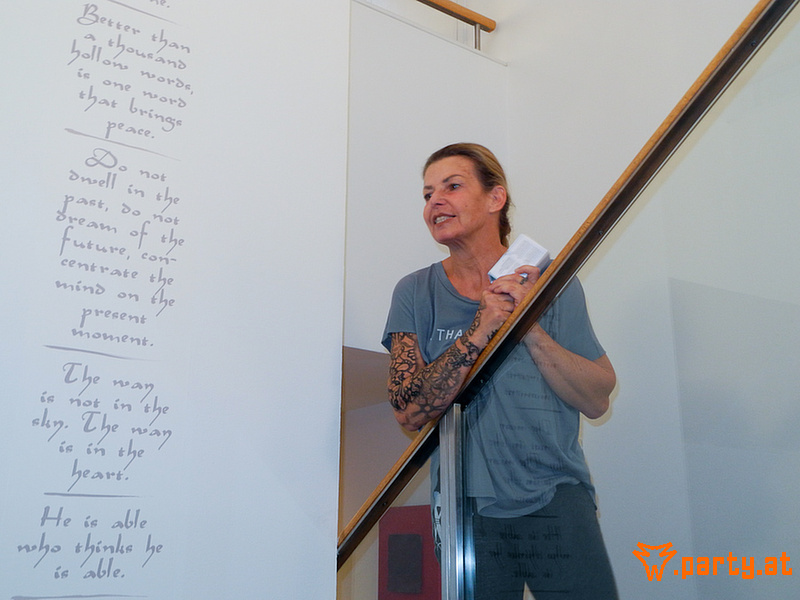 Better than
a thousand
hollow words,
is one word
that brings
peace.
Do not
dwell in the
past, do not
dream of the
future, con-
centrate the
mind on the
present
moment.
The way
is not in the
sky. The way
is in the
heart.
He is able
who thinks he
is able.
THA
w.party.at